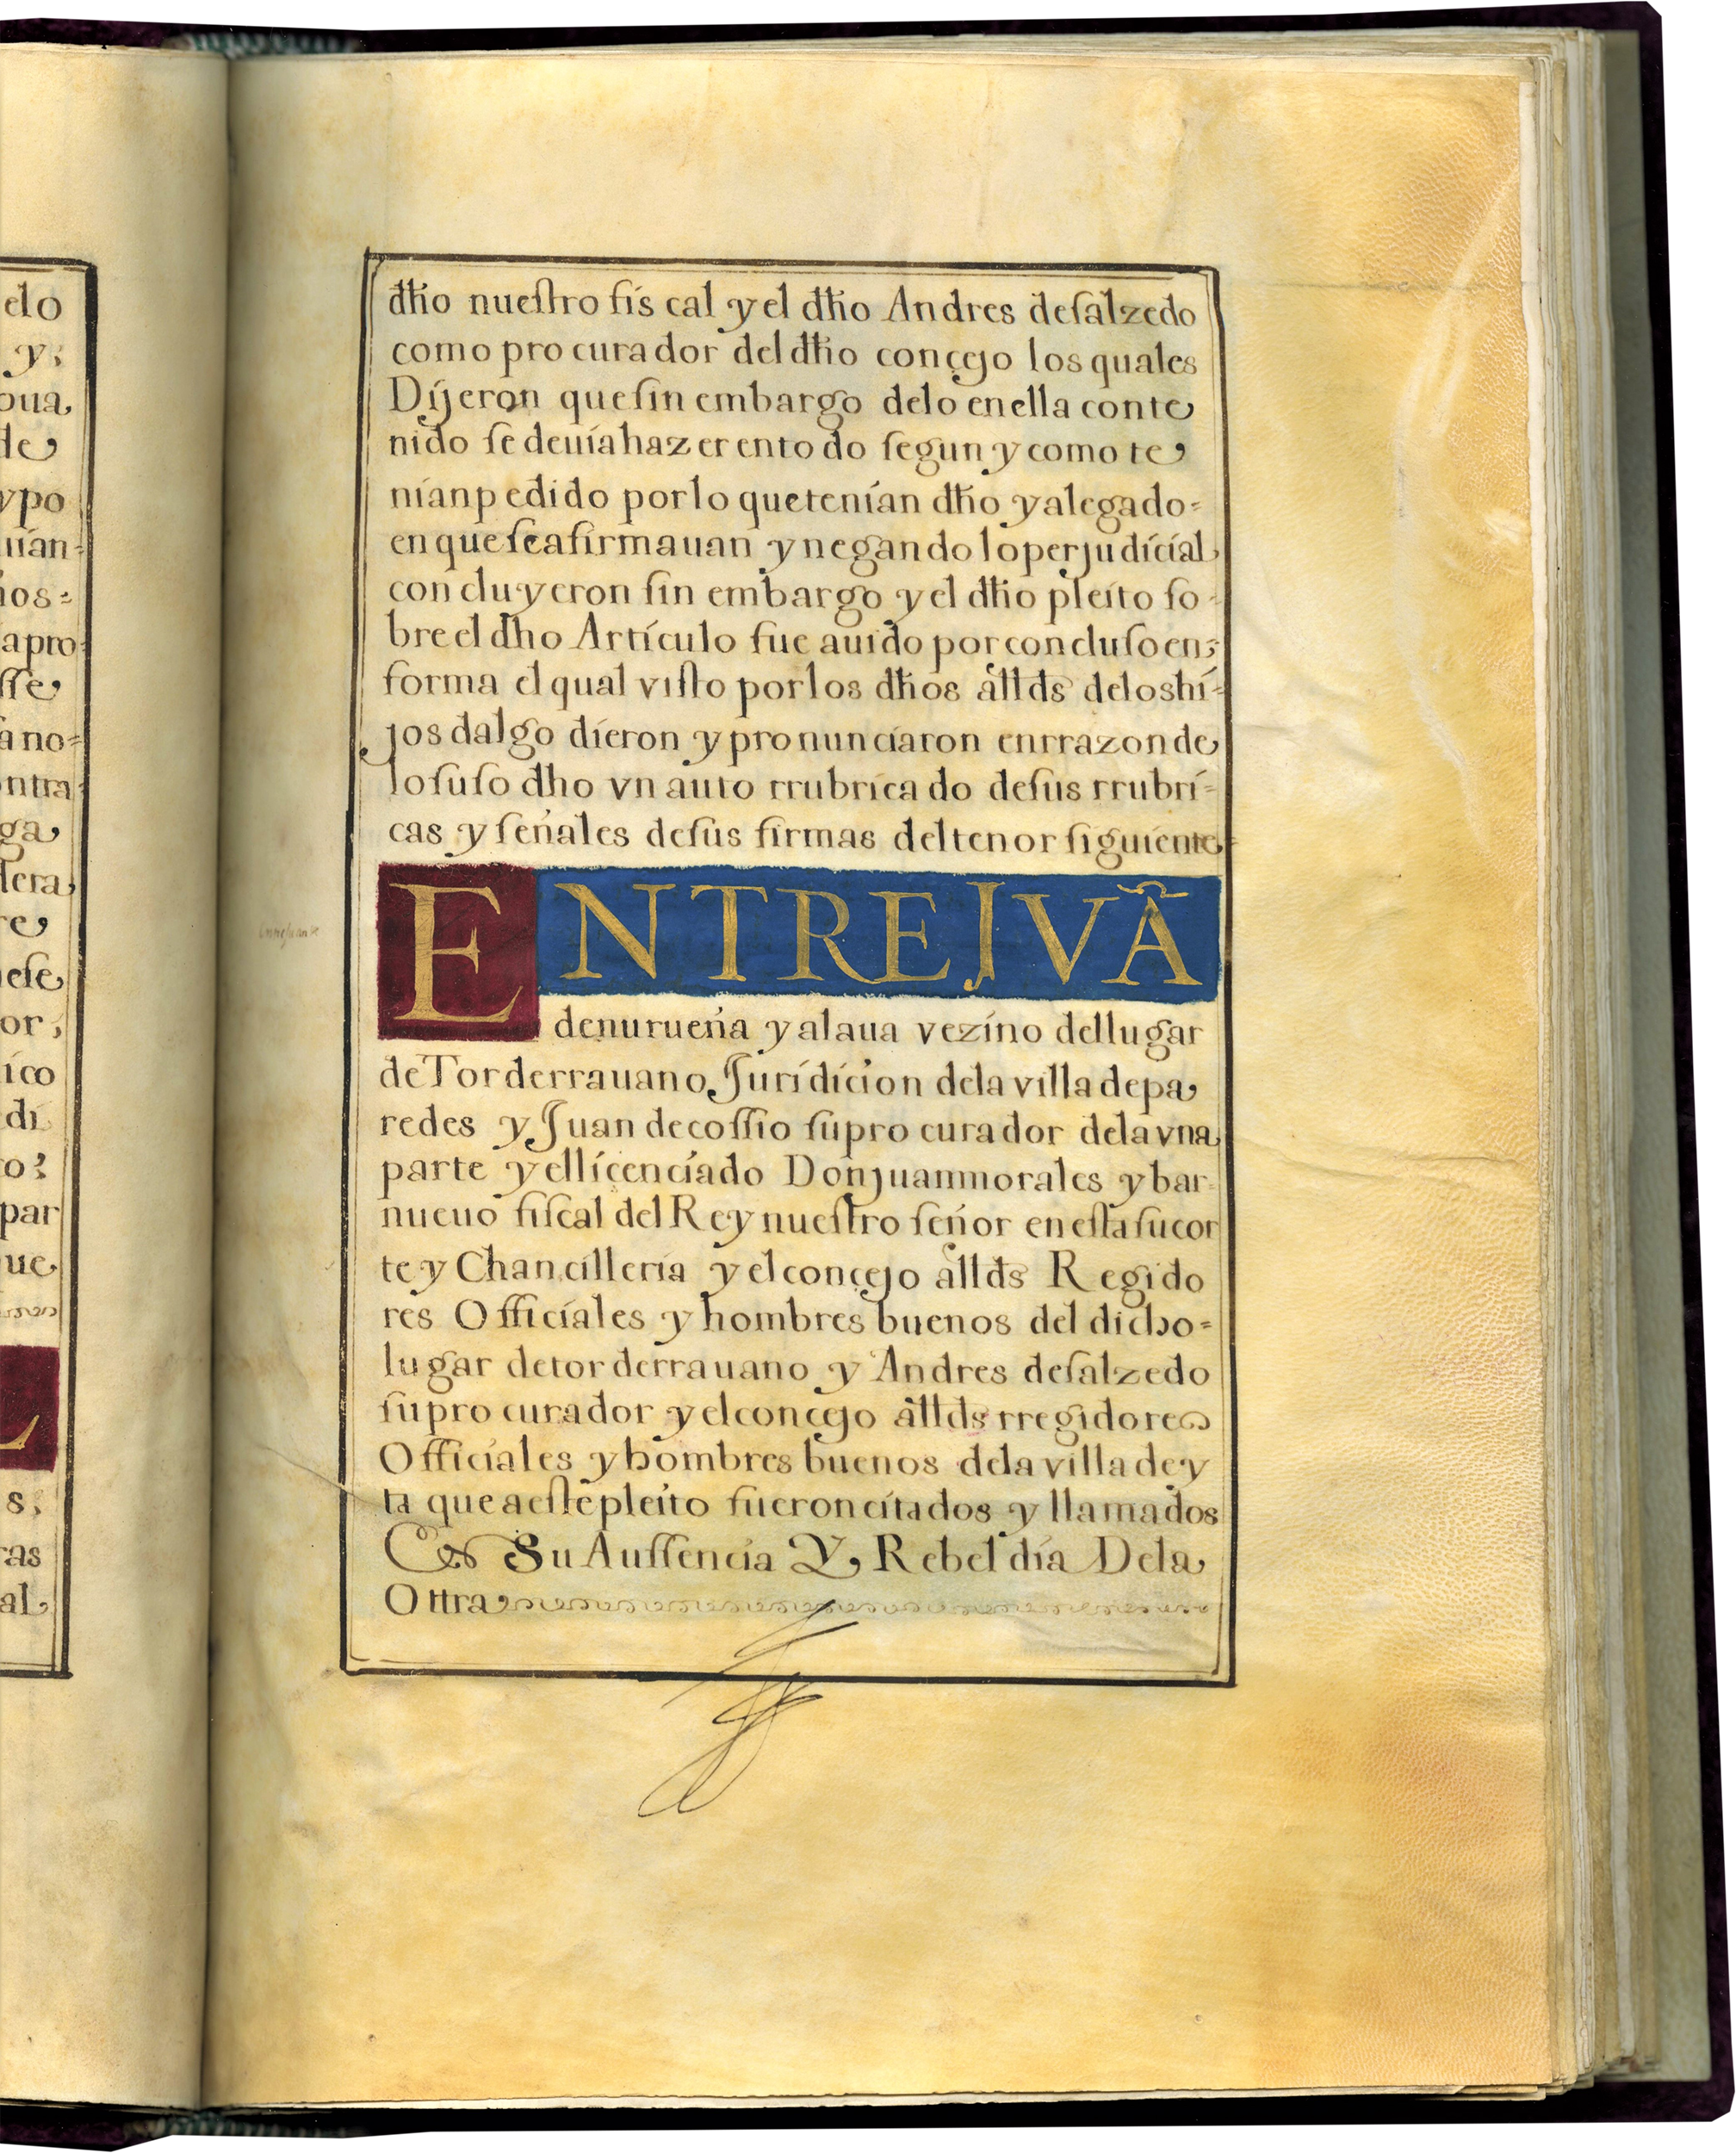 elo
y;
oua,
de
ypo
uian-
ios=
apro-
sse,
ano=
ntra-
ga,
dera,
re
iese,
or,
ico
di
ro:
par
ue,
s,
ras
al,
dħo nueſtro fis cal y el dħo Andres deſalzedo
como pro curador del dħo conçejo los quales
Dijeron queſin embargo delo enella conte
nido ſe deuia haz er ento do ſegun y como te
nianpedido porlo quetenian dħo y alegado=
en que ſe afirmauan y negando lo perjudicial,
con cluyeron ſin embargo y el dħo pleito ſo-
bre el dħo Articulo fue auido por concluſo en,
forma el qual viſto porlos dħos allds deloshi=
jos dalgo dieron y pronunciaron enrrazon de
loſuſo dħo vn auto rrubrica do deſus rrubri=
cas y ſeñales deſus firmas deltenor ſiguiente
ENTRE JVÃ
denurueña y alaua vezino dellugar
de Tor derrauano, Juridicion dela villa depa
redes y Juan decoſſio ſu pro curador dela vna
parte y ellicenciado Don juan morales y bar
nueuo fiſcal del Rey nueſtro ſeñor en eſta ſu cor
te y Chancilleria y el conçejo allds Regido
res Officiales y hombres buenos del dicho=
lugar detor derrauano y Andres deſalzedo
ſu pro curador y el conçejo allds rregidores
Officiales y hombres buenos dela villa de y
ta que aeſte pleito fueron citados y llamados
En Su Auſſencia Y, Rebeldia Dela,
Ottra